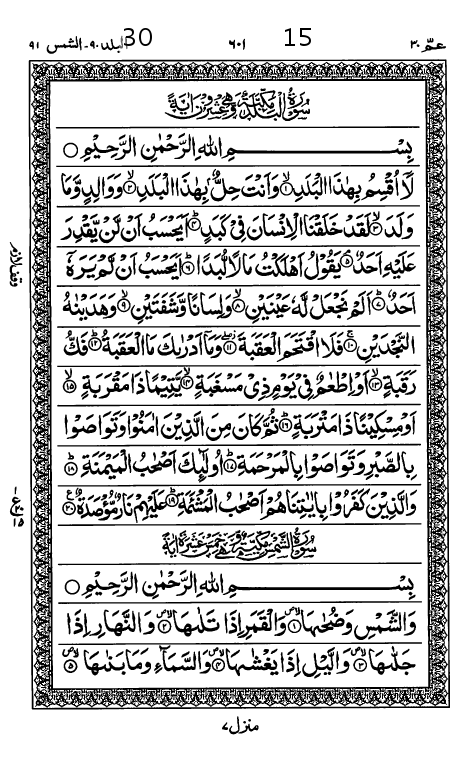 عمّ ٣٠ 15 ٦٠١ 30 البلد ٩٠۔الشمس ٩١
سُوْرَةُ الْبَلَدِ مَكِّيَّةٌ وَّهِيَ عِشْرُوْنَ اٰيَةً
بِسْــــــــمِ اللّٰهِ الرَّحْمٰنِ الرَّحِيْمِ ○
لَاۤ اُقْسِمُ بِهٰذَا الْبَلَدِ ۙ﴿١﴾ وَاَنْتَ حِلٌّۢ بِهٰذَا الْبَلَدِ ۙ﴿٢﴾ وَوَالِدٍ وَّمَا
وَلَدَ ۙ﴿٣﴾ لَقَدْ خَلَقْنَا الْاِنْسَانَ فِيْ كَبَدٍ ؕ﴿٤﴾ اَيَحْسَبُ اَنْ لَّنْ يَّقْدِرَ
عَلَيْهِ اَحَدٌ ۘ﴿٥﴾ يَقُوْلُ اَهْلَكْتُ مَالًا لُّبَدًا ؕ﴿٦﴾ اَيَحْسَبُ اَنْ لَّمْ يَرَهٗۤ
وقف لازم
اَحَدٌ ؕ﴿٧﴾ اَلَمْ نَجْعَلْ لَّهٗ عَيْنَيْنِ ۙ﴿٨﴾ وَلِسَانًا وَّشَفَتَيْنِ ۙ﴿٩﴾ وَهَدَيْنٰهُ
النَّجْدَيْنِ ۚ﴿١٠﴾ فَلَا اقْتَحَمَ الْعَقَبَةَ ۖ﴿١١﴾ وَمَاۤ اَدْرٰىكَ مَا الْعَقَبَةُ ؕ﴿١٢﴾ فَكُّ
رَقَبَةٍ ۙ﴿١٣﴾ اَوْ اِطْعٰمٌ فِيْ يَوْمٍ ذِيْ مَسْغَبَةٍ ۙ﴿١٤﴾ يَّتِيْمًا ذَا مَقْرَبَةٍ ۙ﴿١٥﴾
اَوْ مِسْكِيْنًا ذَا مَتْرَبَةٍ ؕ﴿١٦﴾ ثُمَّ كَانَ مِنَ الَّذِيْنَ اٰمَنُوْا وَتَوَاصَوْا
بِالصَّبْرِ وَتَوَاصَوْا بِالْمَرْحَمَةِ ؕ﴿١٧﴾ اُولٰٓئِكَ اَصْحٰبُ الْمَيْمَنَةِ ؕ﴿١٨﴾
وَالَّذِيْنَ كَفَرُوْا بِاٰيٰتِنَا هُمْ اَصْحٰبُ الْمَشْـَٔمَةِ ؕ﴿١٩﴾ عَلَيْهِمْ نَارٌ مُّؤْصَدَةٌ ﴿٢٠﴾
سُوْرَةُ الشَّمْسِ مَكِّيَّةٌ وَّهِيَ خَمْسَ عَشْرَةَ اٰيَةً
بِسْــــــــمِ اللّٰهِ الرَّحْمٰنِ الرَّحِيْمِ ○
وَالشَّمْسِ وَضُحٰىهَا ﴿١﴾ وَالْقَمَرِ اِذَا تَلٰىهَا ﴿٢﴾ وَالنَّهَارِ اِذَا
جَلّٰىهَا ﴿٣﴾ وَالَّيْلِ اِذَا يَغْشٰىهَا ﴿٤﴾ وَالسَّمَآءِ وَمَا بَنٰىهَا ﴿٥﴾
منزل ٧